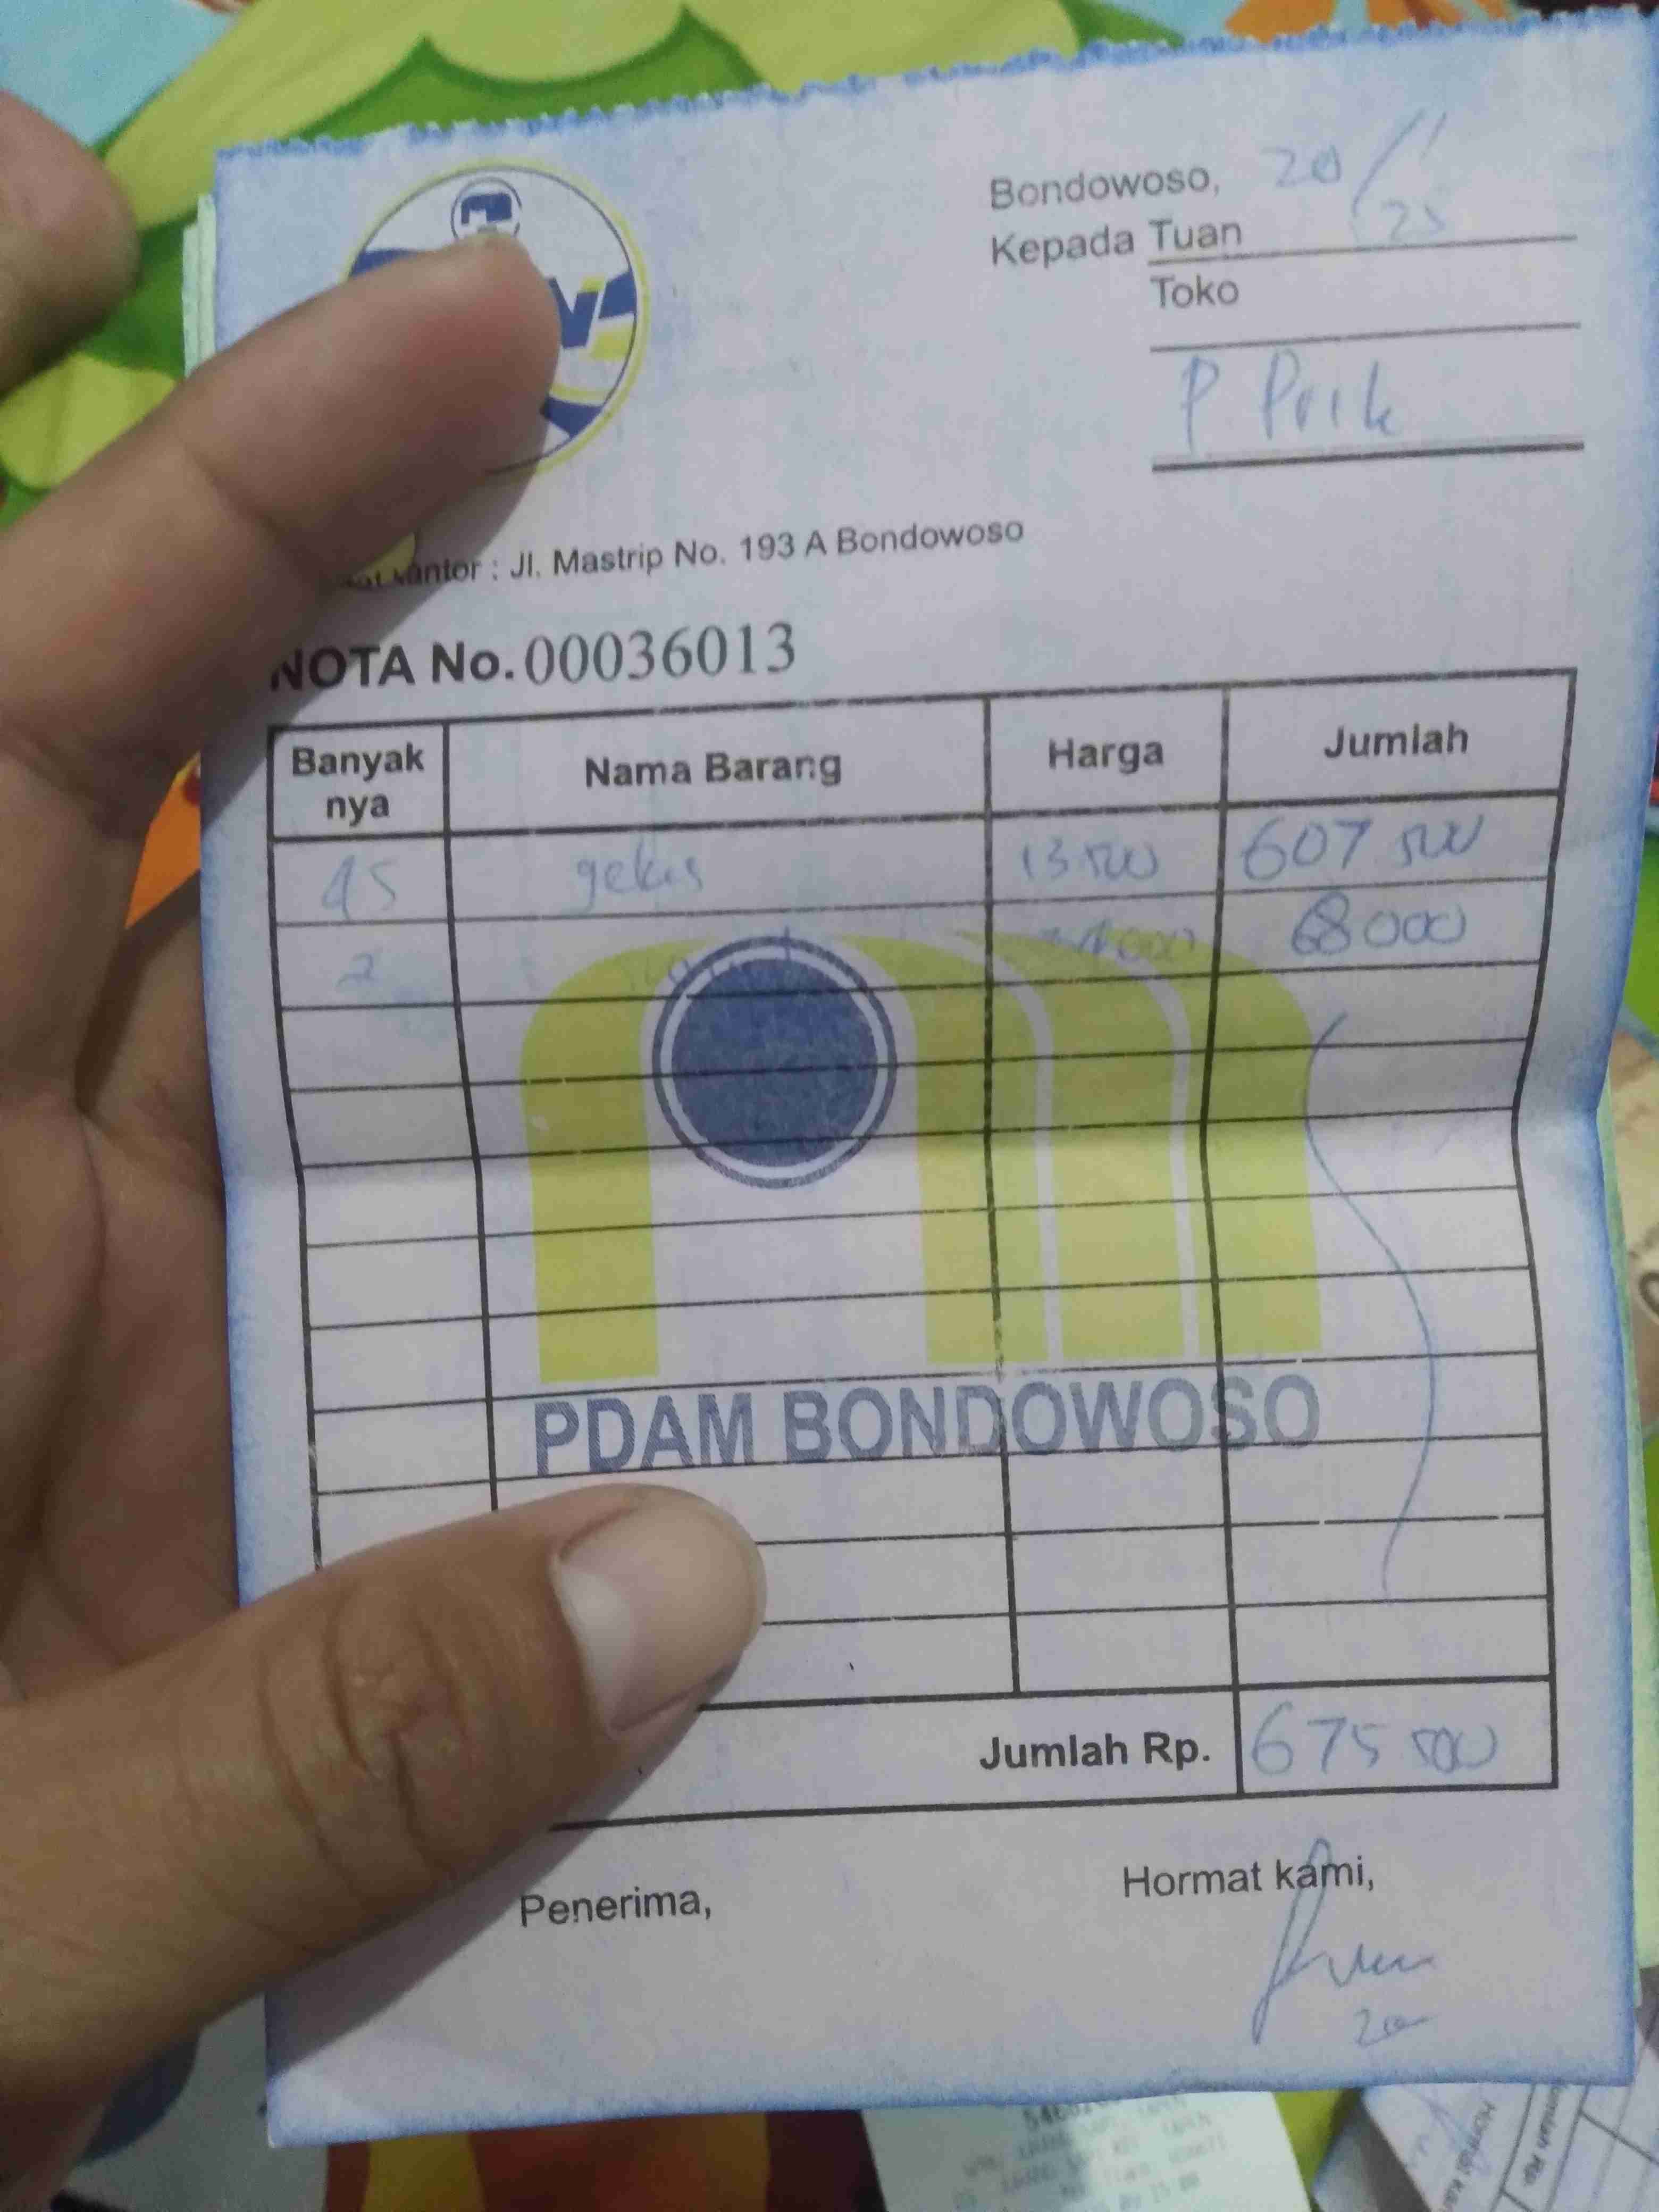 Bondowoso, 20/11/25
Kepada Tuan
Toko
P Prik
kantor : Jl. Mastrip No. 193 A Bondowoso
NOTA No. 00036013
Banyak nya Nama Barang Harga Jumlah
45 gelas 13 500 607 500
2 34000 68000
PDAM BONDOWOSO
Jumlah Rp. 675 500
Penerima, Hormat kami,